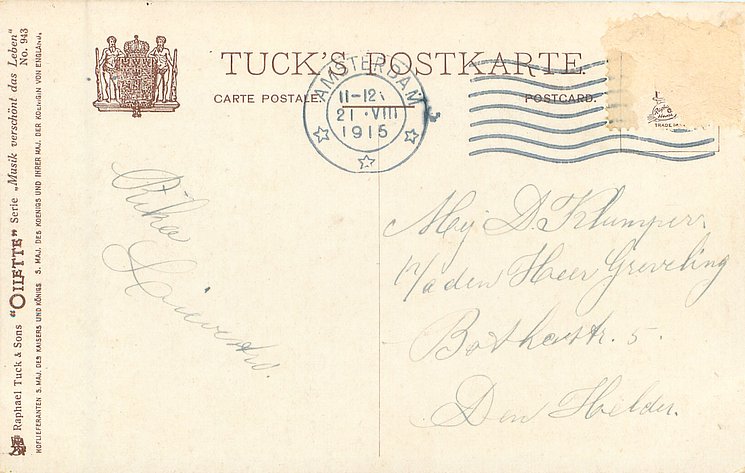 TUCK'S POSTKARTE.
CARTE POSTALE.
POSTCARD.
AMSTERDAM
11-12
21 VIII
1915
TRADE MARK
Raphael Tuck & Sons "OILETTE" Serie „Musik verschönt das Leben"
No. 943
HOFLIEFERANTEN S. MAJ. DES KAISERS UND KÖNIGS S. MAJ. DES KOENIGS UND IHRER MAJ. DER KOENIGIN VON ENGLAND.
Rika
Mej D. Klumper.
p/a den Heer Greveling
Bothastr. 5.
Den Helder.